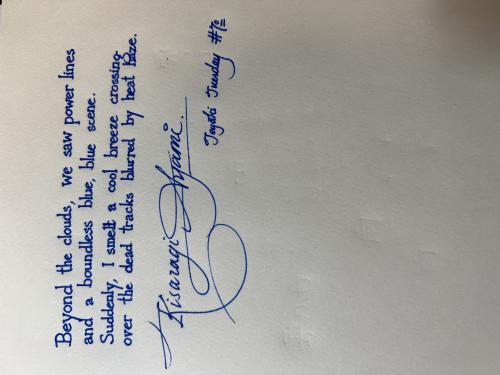 Beyond the clouds, we saw power lines
and a boundless blue, blue scene.
Suddenly, I smelt a cool breeze crossing
over the dead tracks blurred by heat haze.
Kisaragi Ayami.
Tuesday